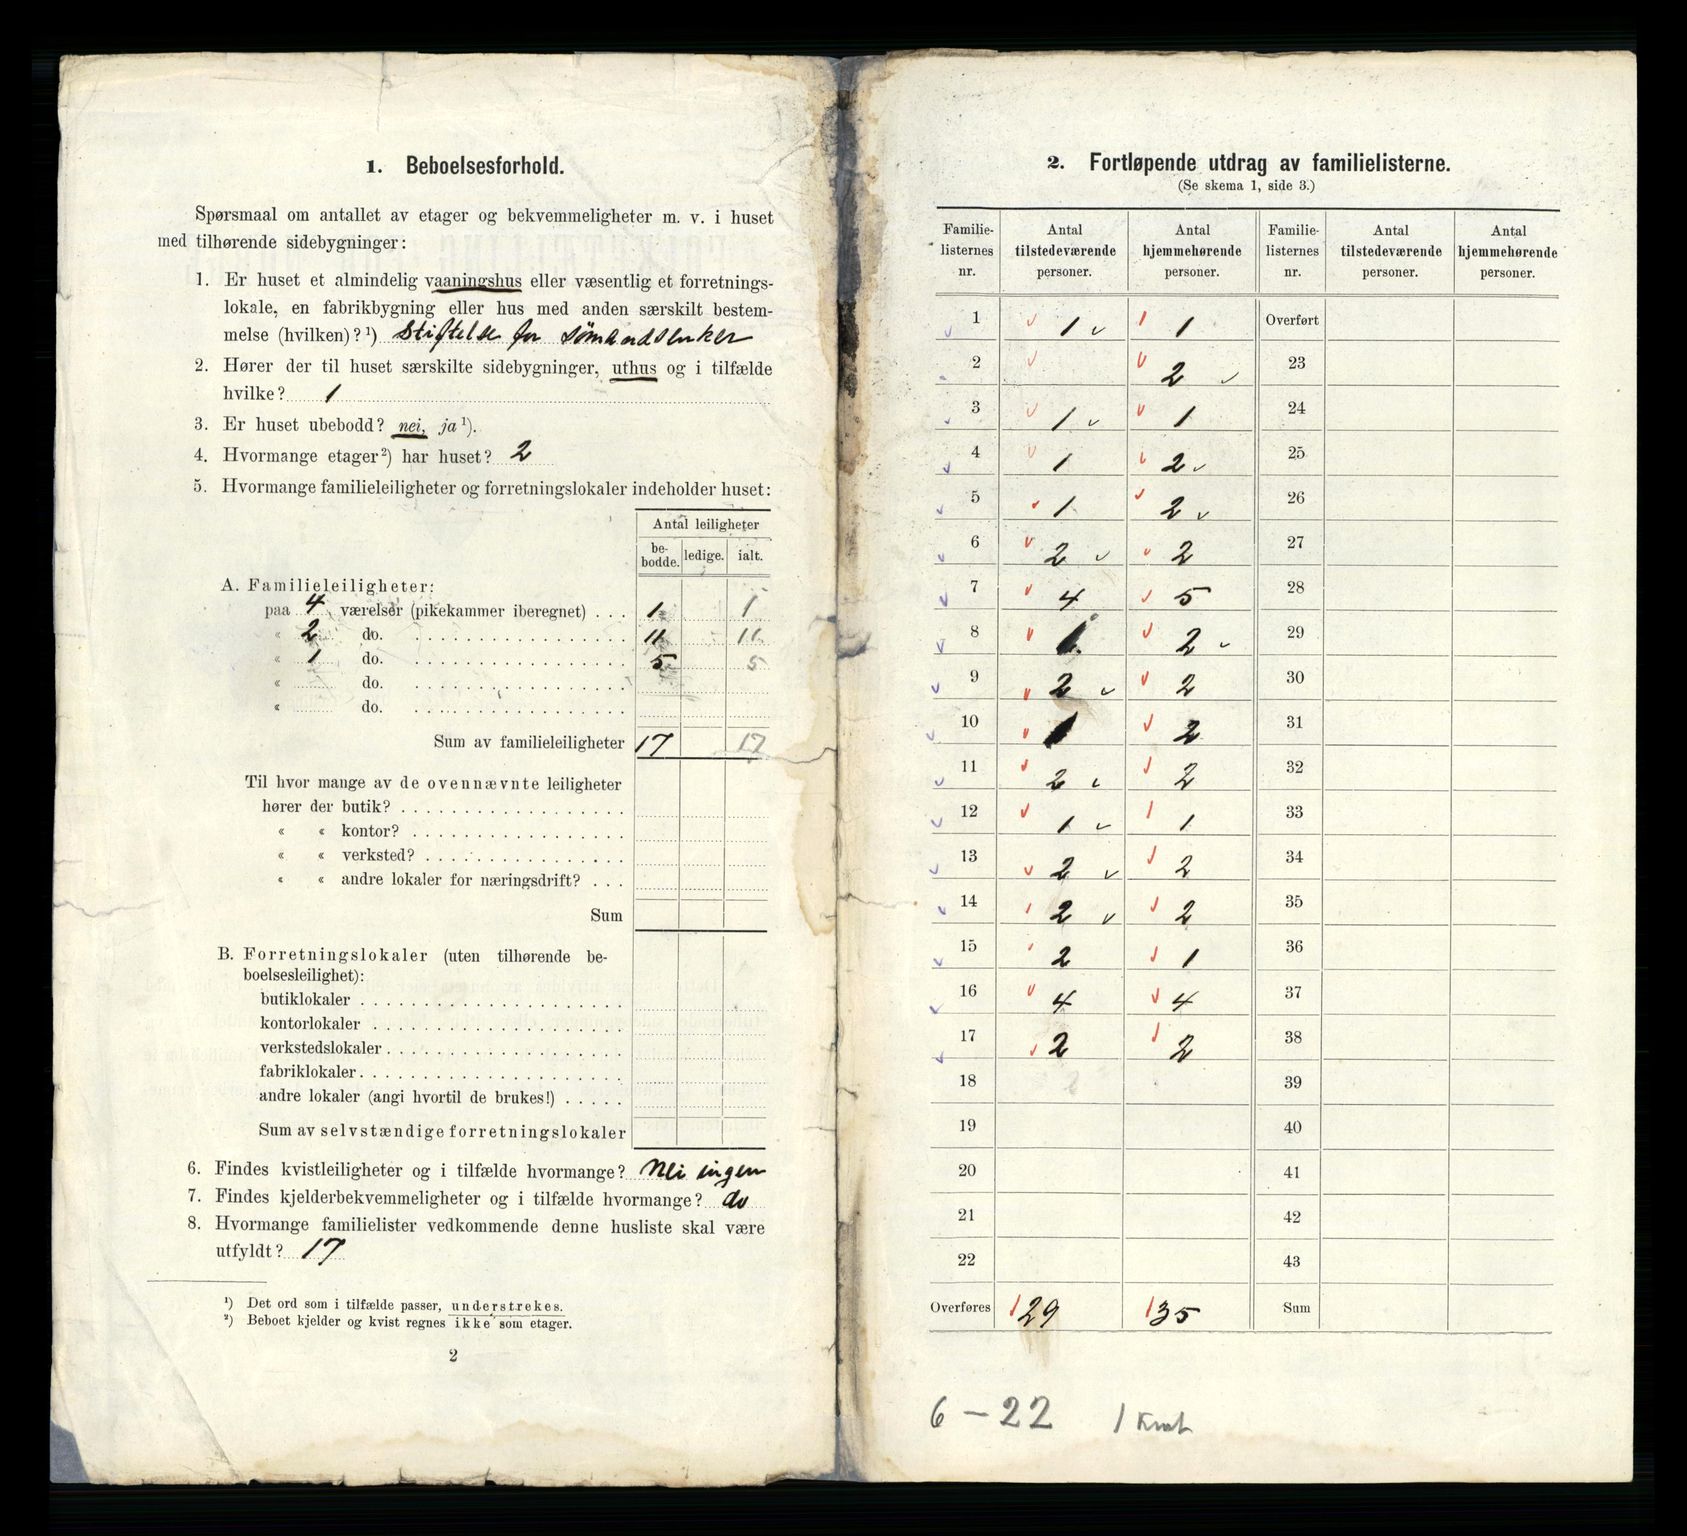 1. Beboelsesforhold.
Spørsmaal om antallet av etager og bekvemmeligheter m. v. i huset
med tilhørende sidebygninger:
1. Er huset et almindelig vaaningshus eller væsentlig et forretnings-
lokale, en fabrikbygning eller hus med anden særskilt bestem-
melse (hvilken)?¹) Stiftelse for sømandsenker
2. Hører der til huset særskilte sidebygninger, uthus og i tilfælde
hvilke? 1
3. Er huset ubebodd? nei, ja¹).
4. Hvormange etager²) har huset? 2
5. Hvormange familieleiligheter og forretningslokaler indeholder huset:
Antal leiligheter
be-bodde. ledige. ialt.
A. Familieleiligheter:
paa 4 værelser (pikekammer iberegnet) . . . 1 1
« 2 do. . . . . . . . . . . . . . . . . . . 11 11
« 1 do. . . . . . . . . . . . . . . . . . . 5 5
« do. . . . . . . . . . . . . . . . . . .
« do. . . . . . . . . . . . . . . . . . .
Sum av familieleiligheter 17 17
Til hvor mange av de ovennævnte leiligheter
hører der butik? . . . . . . . . . . . . . . . . . .
« « kontor? . . . . . . . . . . . . . . . . . .
« « verksted? . . . . . . . . . . . . . . . . .
« « andre lokaler for næringsdrift? . . .
Sum
B. Forretningslokaler (uten tilhørende be-
boelsesleilighet):
butiklokaler . . . . . . . . . . . . . . . . . . . . .
kontorlokaler . . . . . . . . . . . . . . . . . . . .
verkstedslokaler . . . . . . . . . . . . . . . . . . .
fabriklokaler . . . . . . . . . . . . . . . . . . . . .
andre lokaler (angi hvortil de brukes!) . . . . .
Sum av selvstændige forretningslokaler
6. Findes kvistleiligheter og i tilfælde hvormange? Nei ingen
7. Findes kjelderbekvemmeligheter og i tilfælde hvormange? do
8. Hvormange familielister vedkommende denne husliste skal være
utfyldt? 17
¹) Det ord som i tilfælde passer, understrekes.
²) Beboet kjelder og kvist regnes ikke som etager.
2
2. Fortløpende utdrag av familielisterne.
(Se skema 1, side 3.)
Familie- Antal Antal Familie- Antal Antal
listernes tilstedeværende hjemmehørende listernes tilstedeværende hjemmehørende
nr. personer. personer. nr. personer. personer.
1 1 1 Overført
2 2 23
3 1 1 24
4 1 2 25
5 1 2 26
6 2 2 27
7 4 5 28
8 1 2 29
9 2 2 30
10 1 2 31
11 2 2 32
12 1 1 33
13 2 2 34
14 2 2 35
15 2 1 36
16 4 4 37
17 2 2 38
18 39
19 40
20 41
21 42
22 43
Overføres 29 35 Sum
6 - 22 1